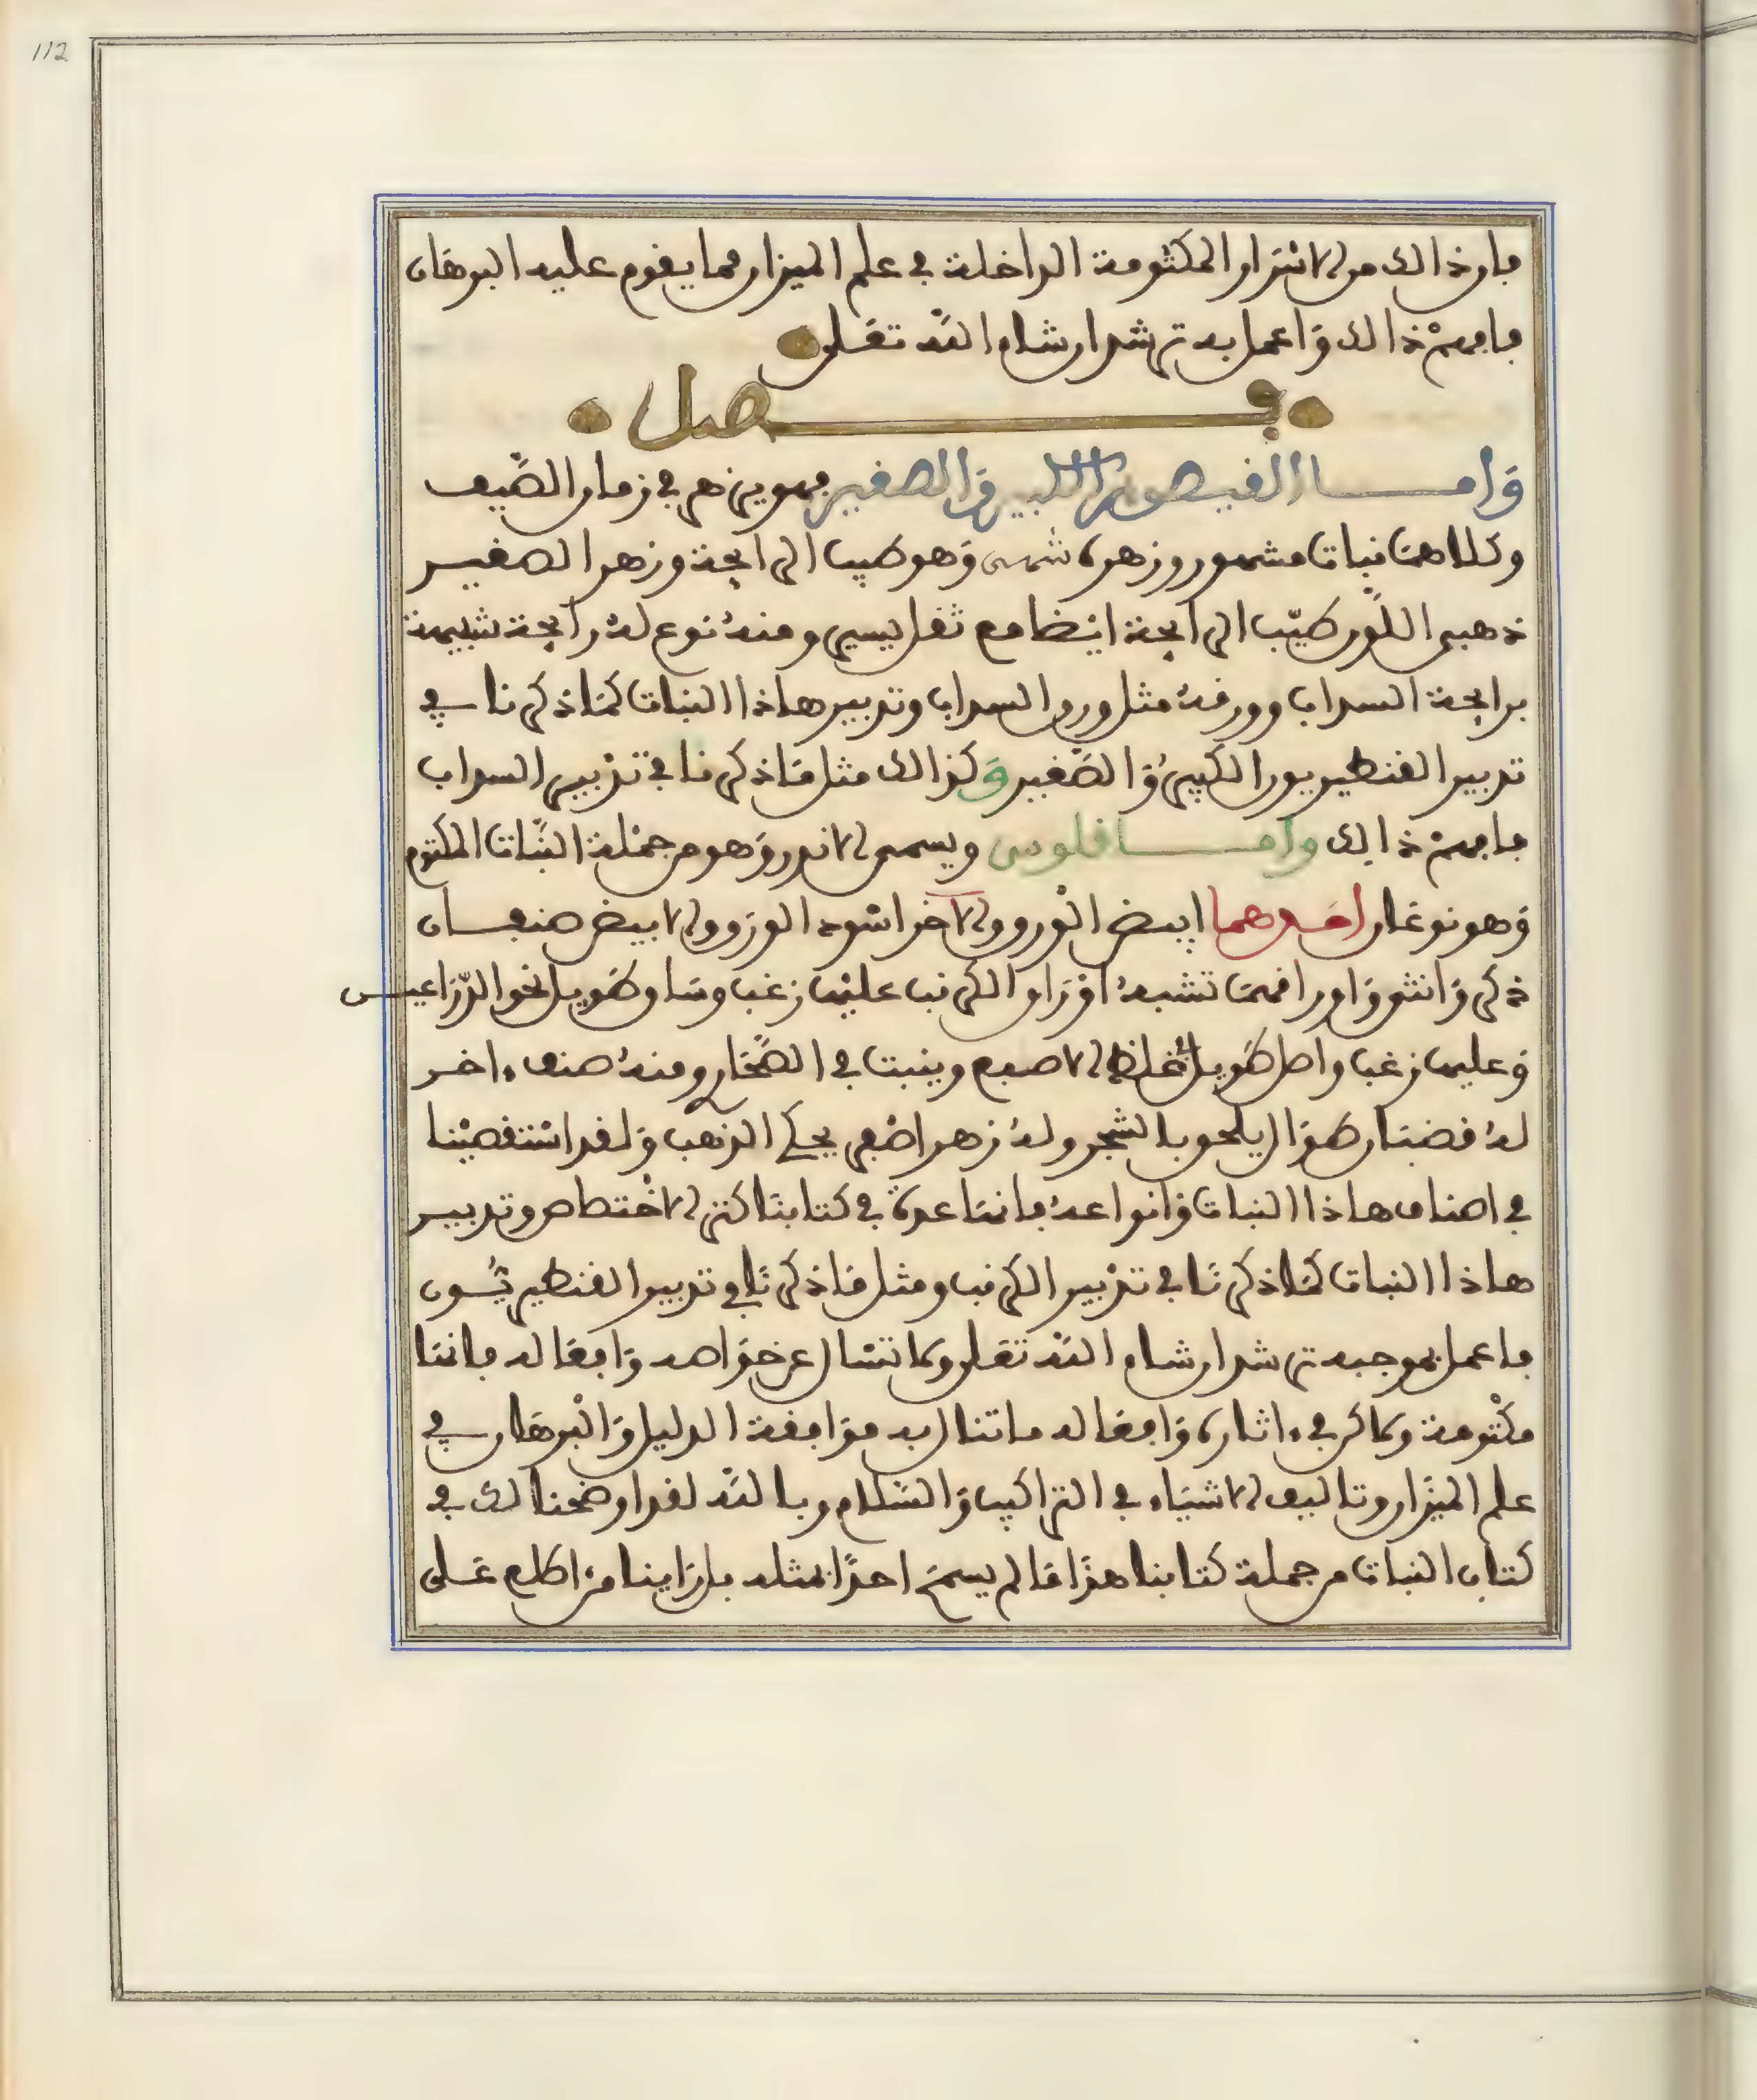 112
فان ذالك من الاسرار المكتومة الداخلة في علم الميزان مما يقوم عليه البرهان
فافهم ذالك واعمل به ترشد ان شاء الله تعلى
فصل
واما القيصوم الكبير والصغير فهو يزهر في زمان الصيف
وكلاهما نبات مشهور وزهره شمسى وهو طيب الرايحة وزهر الصغير
ذهبى اللون طيب الرايحة ايضا مع ثقل يسير ومنه نوع له رايحة شبيهة
برايحة السداب وورقه مثل ورق السداب وتدبير هاذا النبات كما ذكرنا في
تدبير القنطيريون الكبير والصغير وكذالك مثل ما ذكرنا في تدبير السداب
فافهم ذالك واما فلوس ويسمى الاندر وهو من جملة النبات المكتوم
وهو نوعان احدهما ابيض الورق والاخر اسود الورق والابيض صنفان
ذكر وانثى واوراقهما تشبه اوراق الكرنب عليها زغب وساق طويل نحو الذراعين
وعليها زغب واصل طويل في غلظ الاصبع وينبت في الصخار ومنه صنف ءاخر
له قضبان طوال يلحق بالشجر وله زهر اصفر يحكي الذهب ولقد استقصينا
في اصناف هاذا النبات وانواعه فانها عدة في كتابنا كنز الاختصاص وتدبير
هاذا النبات كما ذكرنا في تدبير الكرنب ومثل ما ذكرنا في تدبير القنطيريون
فاعمل بموجبه ترشد ان شاء الله تعلى ولا تسال عن خواصه وافعاله فانها
مكتومة ولاكن في ءاثاره وافعاله ما تنال به موافقة الدليل والبرهان في
علم الميزان وتاليف الاشياء في التراكيب والسلام وبالله لقد اوضحنا لك في
كتاب النبات من جملة كتابنا هذا ما لم يسمح احدا بمثله فان راينا من اطلع على